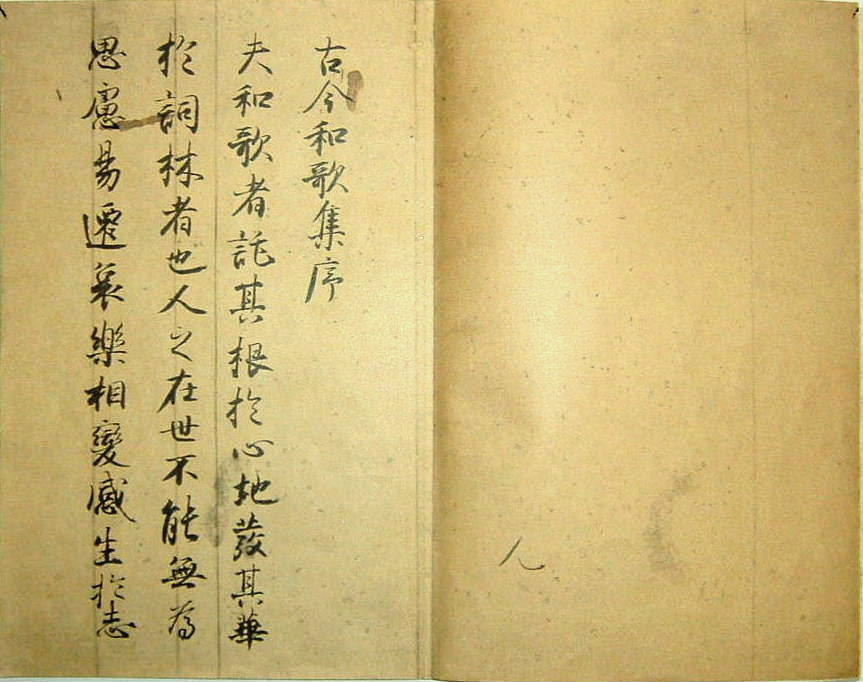 人
古今和歌集序
夫和歌者託其根於心地發其華
於詞林者也人之在世不能無為
思慮易遷哀樂相變感生於志